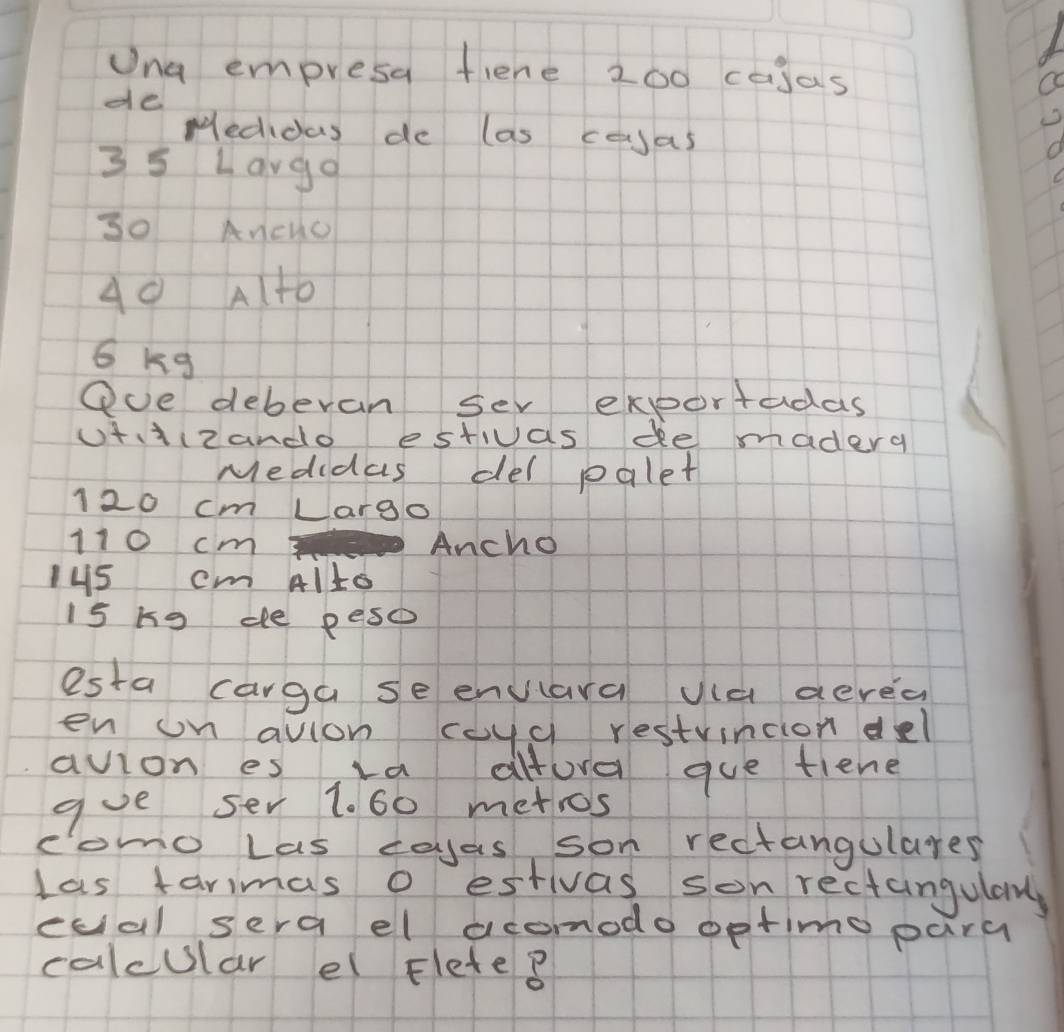 Una empresa tiene 200 cajas
de
Medidas de las cajas
35 Largo
30 Ancho
40 Alto
6 kg
Que deberan ser exportadas
utilizando estivas de madera
Medidas del palet
120 cm Largo
110 cm Ancho
145 cm Alto
15 kg de peso
esta carga se enviara via aeréa
en un avion cuya restrincion del
avion es la altura que tiene
que ser 1.60 metros
como Las cajas son rectangulares
Las tarimas o estivas son rectangulares
cual sera el acomodo optimo para
calcular el Flete?